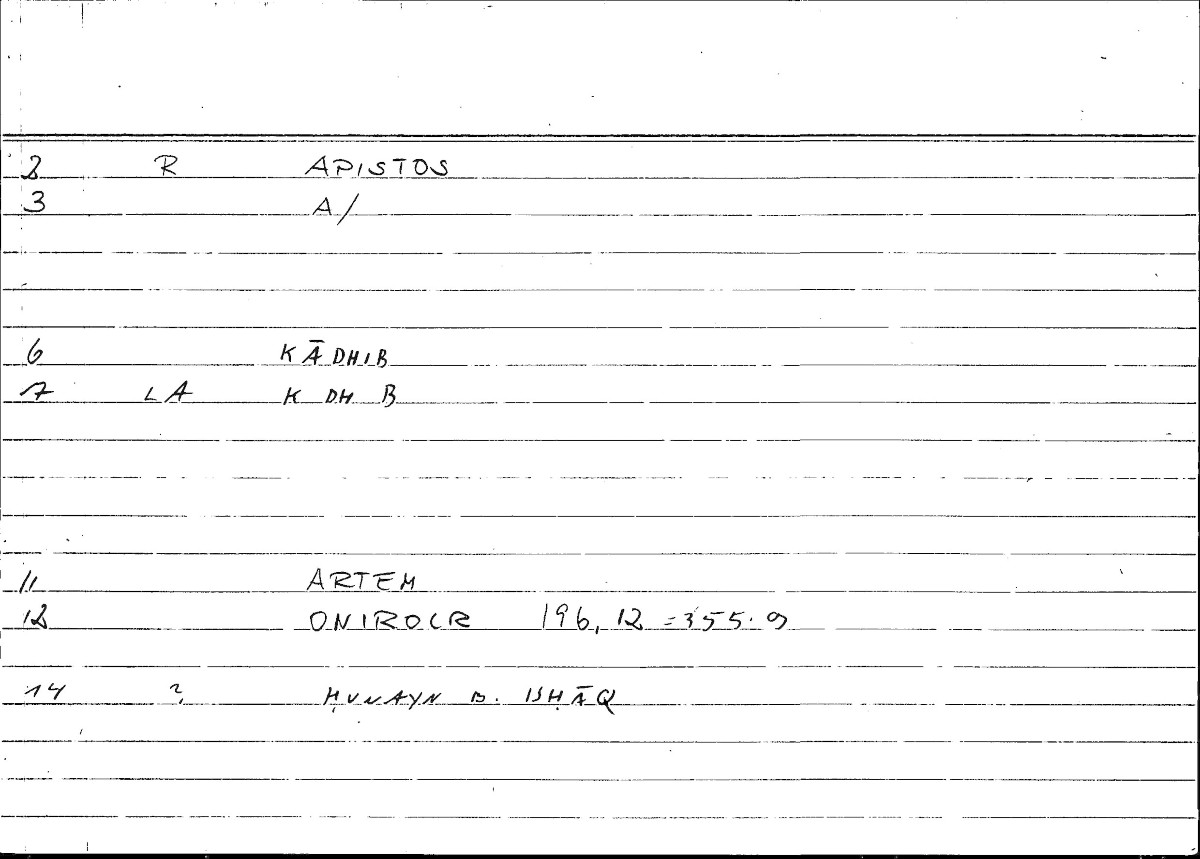 2 R APISTOS
3 A/
6 KĀDHIB
7 LA K DH B
11 ARTEM
12 ONIROCR 196, 12 = 355.9
14 ? ḤUNAYN B. ISḤĀQ